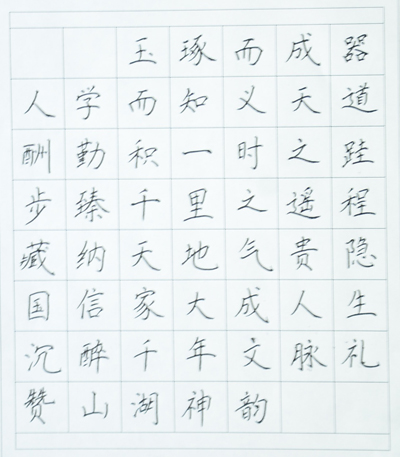 玉琢而成器
人学而知义天道
酬勤积一时之跬
步臻千里之遥程
藏纳天地气贵隐
国信家大成人生
沉醉千年文脉礼
赞山湖神韵